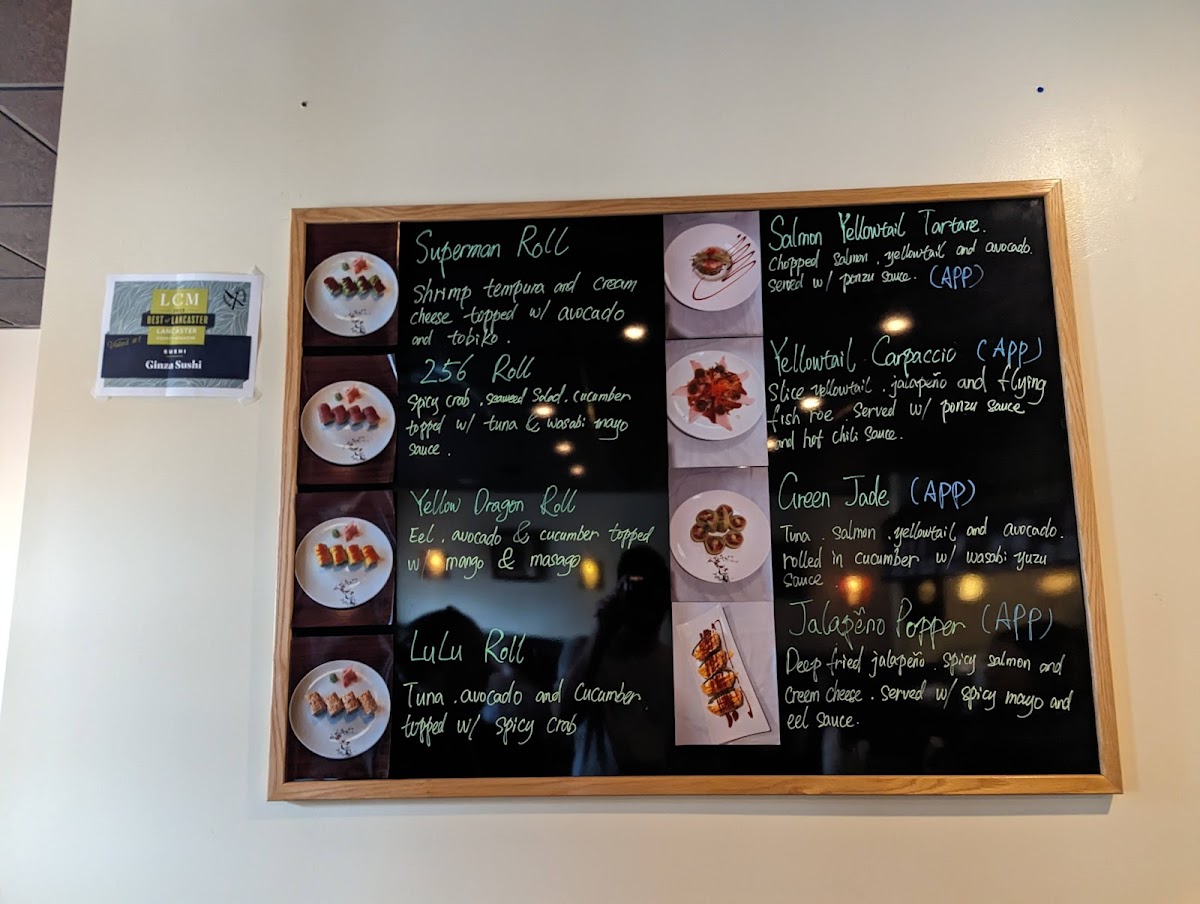 LCM
BEST OF LANCASTER
LANCASTER
Voted #1
SUSHI
Ginza Sushi
Superman Roll
Shrimp tempura and cream
cheese topped w/ avocado
and tobiko.
256 Roll
Spicy crab, seaweed Salad, cucumber
topped w/ tuna & wasabi mayo
sauce.
Yellow Dragon Roll
Eel, avocado & cucumber topped
w/ mango & masago
LuLu Roll
Tuna, avocado and cucumber.
topped w/ spicy crab
Salmon Yellowtail Tartare.
Chopped salmon, yellowtail and avocado.
served w/ ponzu sauce. (APP)
Yellowtail Carpaccio (APP)
Slice yellowtail, jalapeño and flying
fish roe. Served w/ ponzu sauce
and hot chili sauce.
Green Jade (APP)
Tuna, salmon, yellowtail and avocado.
rolled in cucumber w/ wasabi yuzu
sauce.
Jalapẽno Popper (APP)
Deep fried jalapeño, spicy salmon and
creem cheese. served w/ spicy mayo and
eel sauce.